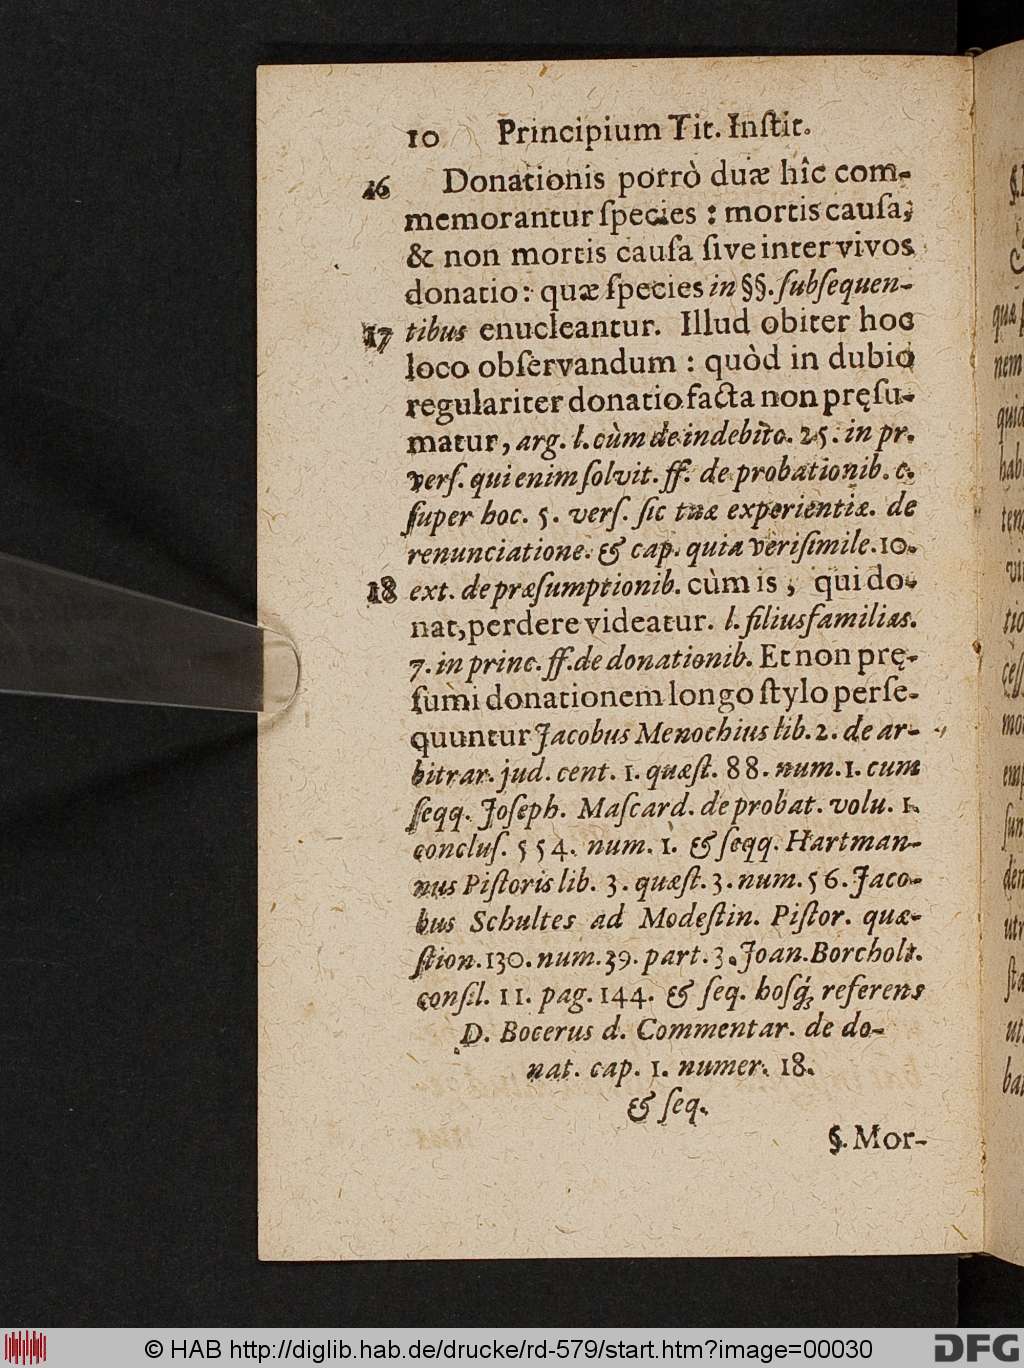 10 Principium Tit. Inſtit.
16 Donationis porrò duæ hîc com-
memorantur ſpecies : mortis cauſa,
& non mortis cauſa ſive inter vivos
donatio: quæ ſpecies in §§. ſubſequen-
17 tibus enucleantur. Illud obiter hoc
loco obſervandum : quòd in dubio
regulariter donatio facta non pręſu-
matur, arg. l. cùm de indebito. 25. in pr.
verſ. qui enim ſolvit. ff. de probationib. c.
ſuper hoc. 5. verſ. ſic tuæ experientiæ. de
renunciatione. & cap. quia veriſimile. 10.
18 ext. de præſumptionib. cùm is, qui do-
nat, perdere videatur. l. filiusfamilias.
7. in princ. ff. de donationib. Et non prę-
ſumi donationem longo ſtylo perſe-
quuntur Jacobus Menochius lib. 2. de ar-
bitrar. jud. cent. 1. quæſt. 88. num. 1. cum
ſeqq. Joſeph. Maſcard. de probat. volu. 1.
concluſ. 554. num. 1. & ſeqq. Hartman-
nus Piſtoris lib. 3. quæſt. 3. num. 56. Jaco-
bus Schultes ad Modeſtin. Piſtor. quæ-
ſtion. 130. num. 39. part. 3. Joan. Borcholt.
conſil. 11. pag. 144. & ſeq. hoſq́; referens
D. Bocerus d. Commentar. de do-
nat. cap. 1. numer. 18.
& ſeq.
§. Mor-
© HAB http://diglib.hab.de/drucke/rd-579/start.htm?image=00030
DFG